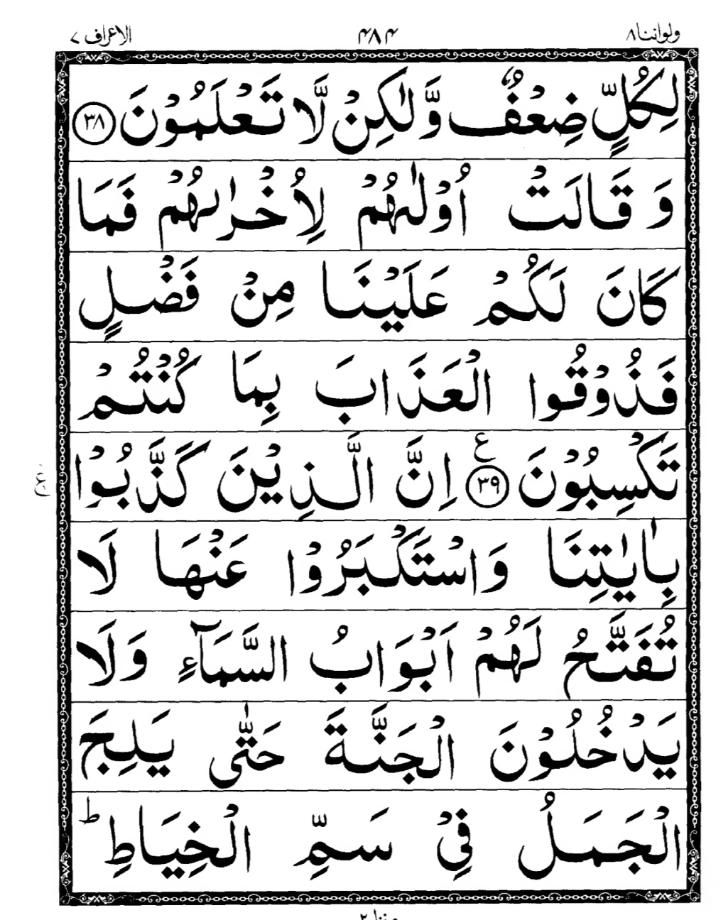 ولواننا ۸ ۴۸۴ الاعراف ۷
لِكُلٍّ ضِعْفٌ وَّلٰكِنْ لَّا تَعْلَمُوْنَ ﴿۳۸﴾
وَ قَالَتْ اُوْلٰىهُمْ لِاُخْرٰىهُمْ فَمَا
كَانَ لَكُمْ عَلَيْنَا مِنْ فَضْلٍ
فَذُوْقُوا الْعَذَابَ بِمَا كُنْتُمْ
تَكْسِبُوْنَ ﴿۳۹﴾ ع اِنَّ الَّذِيْنَ كَذَّبُوْا
بِاٰيٰتِنَا وَاسْتَكْبَرُوْا عَنْهَا لَا
تُفَتَّحُ لَهُمْ اَبْوَابُ السَّمَآءِ وَلَا
يَدْخُلُوْنَ الْجَنَّةَ حَتّٰى يَلِجَ
الْجَمَلُ فِيْ سَمِّ الْخِيَاطِ ؕ
منزل ۲